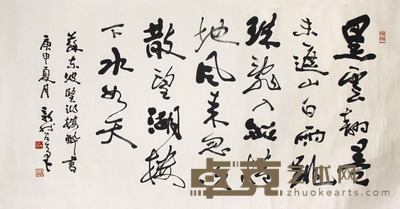 黑雲翻墨
未遮山白雨跳
珠亂入船捲
地風来忽吹
散望湖樓
下水如天
蘇東坡望湖樓醉書
庚申夏月
卓克艺术网
zhuokearts.com